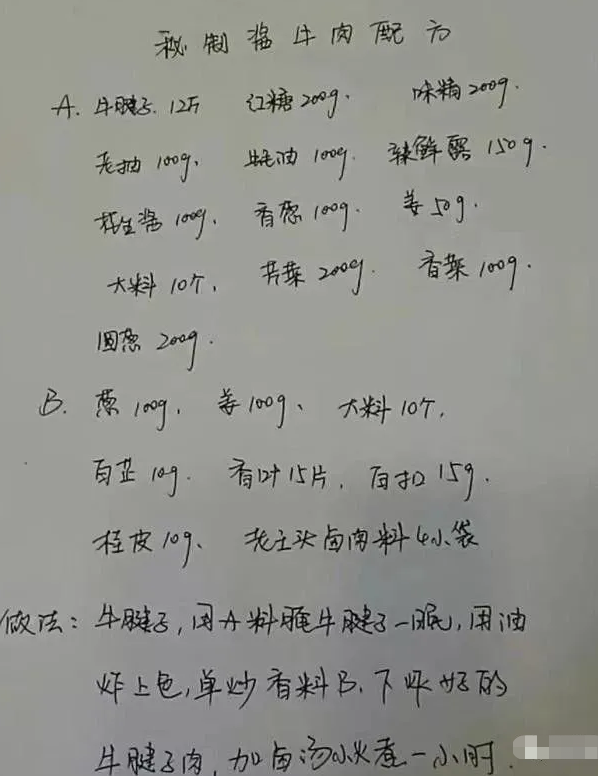 秘制酱牛肉配方
A. 牛腱子. 12斤 红糖 200g. 味精 200g.
老抽 100g. 蚝油 100g. 辣鲜露 150g.
花生酱 100g. 香葱 100g. 姜 50g.
大料 10个, 芹菜 200g. 香菜 100g.
圆葱 200g.
B. 葱 100g, 姜 100g、 大料 10个,
白芷 10g. 香叶 15片, 白扣 15g.
桂皮 10g、 老土头卤肉料 4小袋
做法: 牛腱子, 用A料腌牛腱子一晚, 用油
炸上色, 单炒香料B. 下炸好的
牛腱子肉, 加卤汤小火煮一小时.